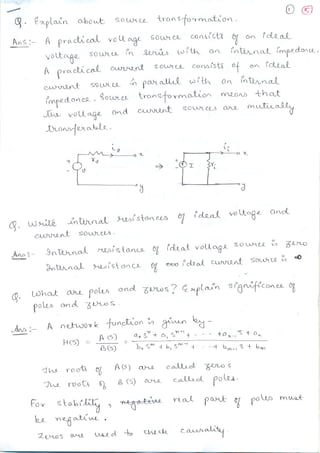 1
Q. Explain about source transformation.
Ans:- A practical voltage source consists of an ideal
voltage source in series with an internal impedance.
A practical current source consists of an ideal
current source in parallel with an internal
impedance. Source transformation means that
the voltage and current sources are mutually
transferable.
+ x y ⇒ I x y
Q. Write internal resistances of ideal voltage and
current sources.
Ans:- Internal resistance of ideal voltage source is zero
Internal resistance of ideal current source is ∞
Q. What are poles and zeros? Explain significance of
poles and zeros.
Ans:- A network function is given by -
H(S) = A(S) / B(S) = a₀ Sⁿ + a₁ Sⁿ⁻¹ + ... + aₙ₋₁ S + aₙ / b₀ Sᵐ + b₁ Sᵐ⁻¹ + ... + bₘ₋₁ S + bₘ
The roots of A(S) are called zeros
The roots of B(S) are called poles.
For stability, negative real part of poles must
be negative.
Zeros are used to check causality.